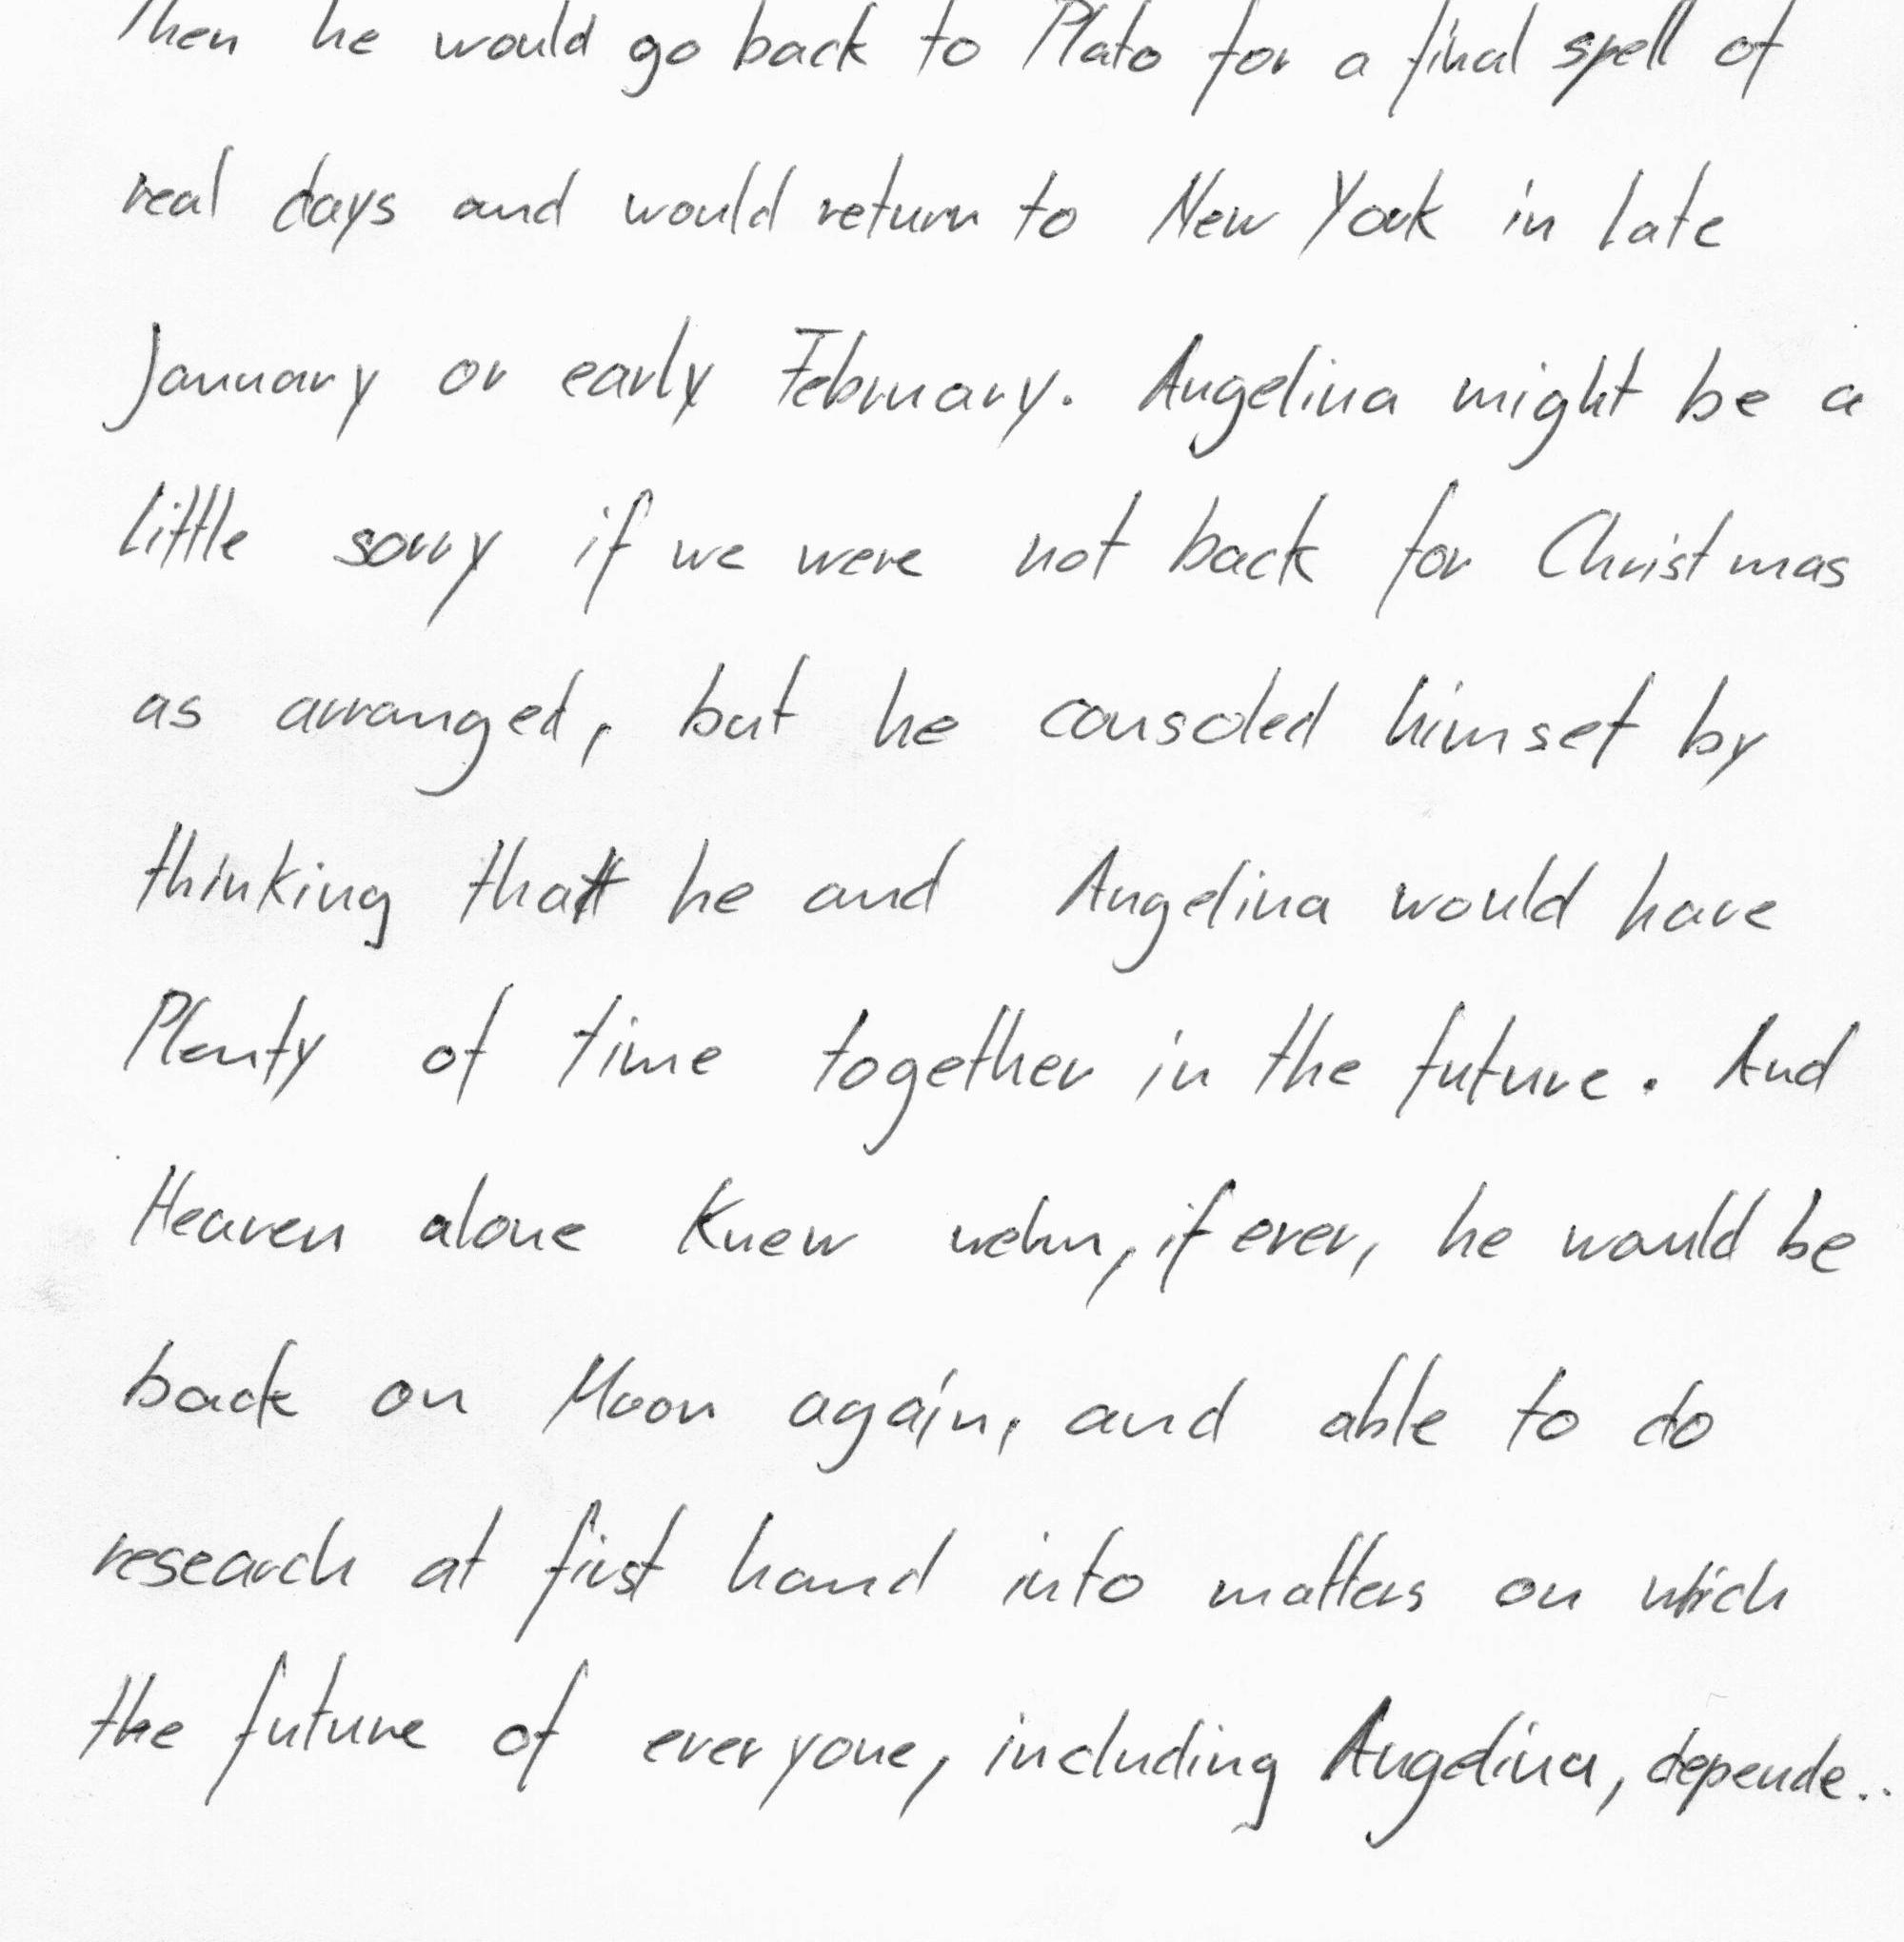 Then he would go back to Plato for a final spell of
real days and would return to New York in late
January or early February. Angelina might be a
little sorry if we were not back for Christmas
as arranged, but he consoled himsef by
thinking that he and Angelina would have
Plenty of time together in the future. And
Heaven alone knew wehn, if ever, he would be
back on Moon again, and able to do
research at first hand into matters on which
the future of everyone, including Angelina, depende..